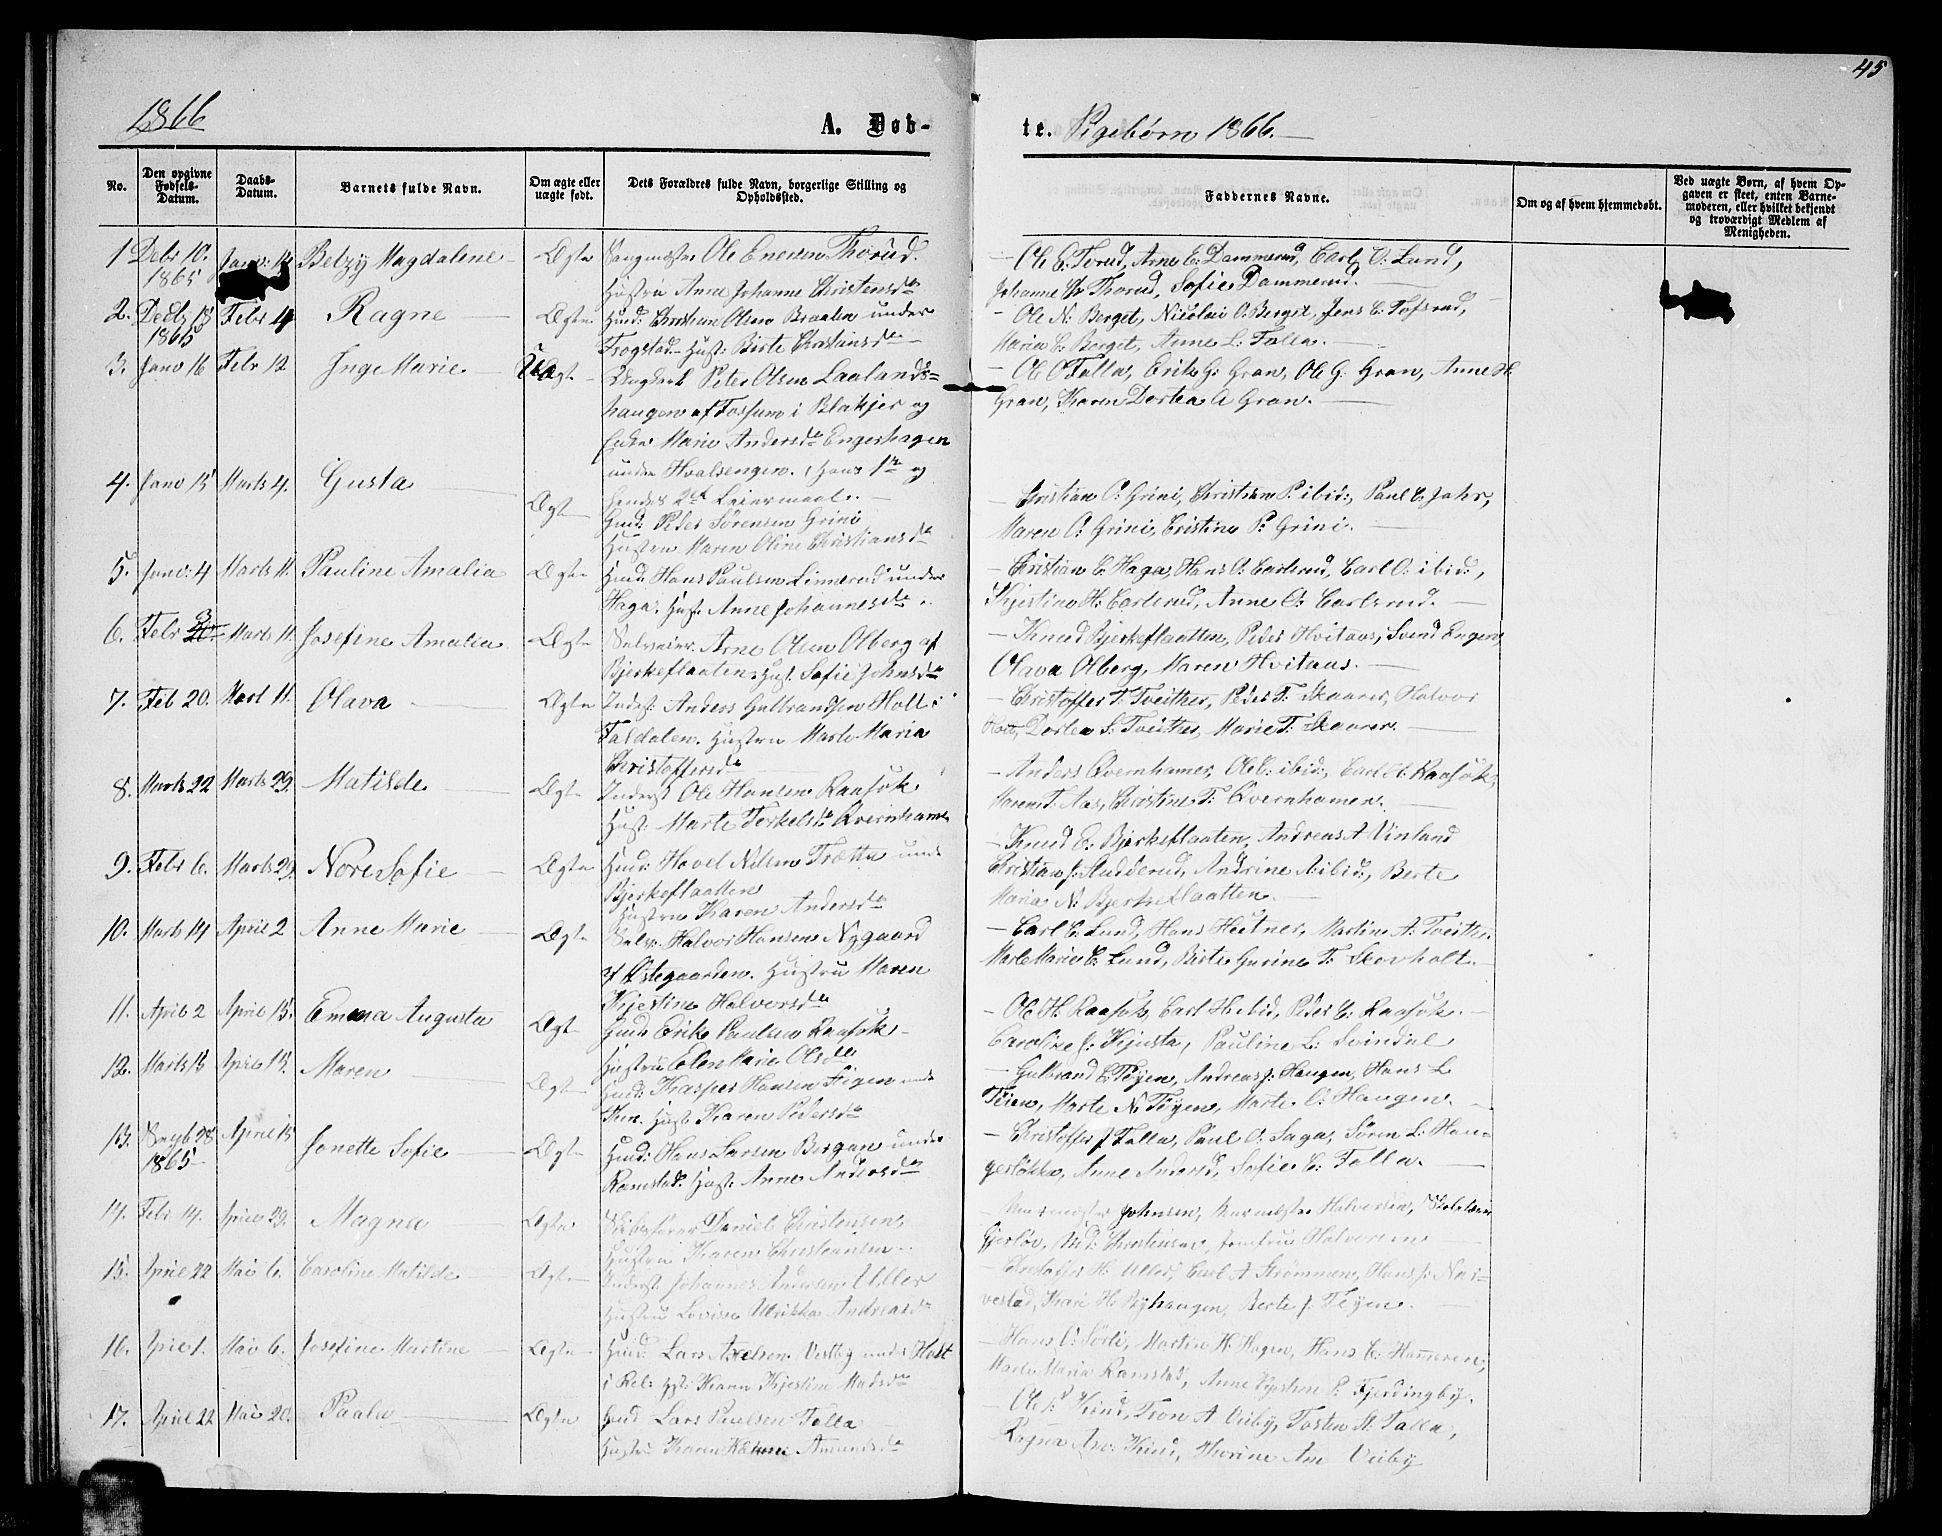 45
1866
A. Døb-
te. Pigebørn 1866.
No.
Den opgivne Fødsels-Datum.
Daabs-Datum.
Barnets fulde Navn.
Om ægte eller uægte født.
Dets Forældres fulde Navn, borgerlige Stilling og Opholdssted.
Faddernes Navne.
Om og af hvem hjemmedøbt.
Ved uægte Børn, af hvem Opgaven er skeet, enten Barnemoderen, eller hvilket bekjendt og troværdigt Medlem af Menigheden.
1 Debr 10. 1865 Janv: 14 Betzy Magdalene Ægte Ole Enersen Thorud.
Hustru Anne Johanne Christensdr
Ole E. Torud, Arne E. Dammerud, Carl O. Lund,
Johanne Thorud, Sofie Dammerud.
2. Decbr 13 1865 Febr 4 Ragne Ægte Husd: Christian Olsen Braaten under
Trogstad Hust: Birte Christiansdr
Ole N. Berget, Nicolai O. Berget, Jens C. Tofsrud,
Maria C. Berget, Anne L. Falla.
3. Janv 16 Febr 12 Inge Marie Uægte Ungkarl Peter Olsen Laalands=
haugen af Fossum i Blakjer og
Enke Marie Andersdr Engerhagen
under Hvalsengen. Hans 1ste og
hendes 2det Leiermaal.
Ole O Falla, Erik G. Gran, Ole G. Gran, Anne H
Gran, Karen Dortea A Gran.
4. Janv 15 Marts 4. Gusta Ægte Gmd: Peder Sørensen Grini
Hustru Maren Oline Christiansdr
Christian O. Grini, Christian P. ibid:, Paul C. Jahr,
Maren O. Grini, Cristine P. Grini.
5. Janv: 4 Marts 11. Pauline Amalia Ægte Husd Hans Paulsen Linnerud under
Haga. Hust: Anne Johannesdr
Christian E. Haga, Hans O. Carlsrud, Carl O. ibid:,
Kjestine H. Carlsrud, Anne O. Carlsrud.
6. Febr 3 Marts 11. Josefine Amalia Ægte Selveier Arne Olsen Olberg af
Bjerkeflaaten, Hust. Sofie Johnsdr
Knud Bjerkeflaatten, Peder Hvitaas, Svend Engen,
Olava Olberg, Maren Hvitaas.
7. Feb 20. Mart 11. Olava Ægte Inderst: Anders Gulbrandsen Holt i
Faldalen. Hustru Marte Maria
Christoffersdr
Christoffer T. Tveither, Peder T. Skaarer, Halvor
Holt, Dortea S. Tveither, Marie T. Skaarer.
8. Marts 22 Marts 29. Matilde Ægte Inderst Ole Hansen Raasok
Hust: Marte Torkelsdr Kvernhamer
Anders Qvernhamer, Ole C. ibid:, Carl H. Raasok,
Maren T. Aas, Christine T. Qvernhamer.
9. Febr 6. Marts 29. Nore Sofie Ægte Husd: Hovel Nilsen Trætta under
Bjerkeflaatten
Hustru Karen Andersdr
Knud E. Bjerkeflaaten, Andreas A Vinland
Christian J. Studderud, Andrine A ibid:, Berte
Maria N. Bjerkeflaatten.
10. Marts 14 April 2 Anne Marie Ægte Selv: Halvor Hansen Nygaard
af Østegaarden. Hustru Maren
Kjestine Halvorsdr
Carl C. Lund, Hans Heitner, Martine A. Tveither.
Marte Marie C. Lund, Birte Gurine T. Skovholt.
11. April 2 April 15. Emma Augusta Ægte Gmd Erik Paulsen Raasok
Hustru Elen Marie Olsdr
Ole H. Raasok, Carl H. ibid, Peder C. Raasok.
Caroline J. Kjusta, Pauline L. Svindal
12. Marts 15 April 15. Maren Ægte Husd: Kasper Hansen Stigen under
Hust. Karen Pedersdr
Gulbrand E. Tøyen, Andreas J. Haugen, Hans L
Tøien, Marte N. Tøyen, Marte O. Haugen.
13. 28 1865 April 15 Jonette Sofie Ægte Husd: Hans Larsen Bergan under
Ramstad. Hust: Anne Andersdr
Christoffer J Falla, Paul O. Saga, Søren L. Hau=
gerløkka, Anne Andersd, Sofie C. Falla.
14. Febr 14. April 29. Magna Ægte Daniel Christensen,
Hustru Karen Christiansen
Johnsen, Halvorsen,
Christensen, Jomfru Halvorsen
15. April 22 Mai 6. Caroline Matilde Ægte Inderst Johannes Andersen Uller
Hustru Lovise Ulrikka Andreasdr
Christoffer H. Uller, Carl A Strømmen, Hans J. Nar=
vestad, Kari H. Byhaugen, Berte J. Tøyen.
16. April 1. Mai 6. Josefine Martine Ægte Husd: Lars Axelsen Vestby under Holt
i Rel: Hust: Karen Kjestine Madsdr
Hans O. Sørli, Martin H. Hagen, Hans C. Hameren,
Marte Maria Ramstad, Anne Kjestine P. Fjerdingby.
17. April 22 Mai 20. Paala Ægte Gmd Lars Paulsen Falla
Hustru Karen Amundsdr
Ole Kind, Tron A Veiby, Torsten St. Falla,
Ragna Kind, Thorine Am Veiby